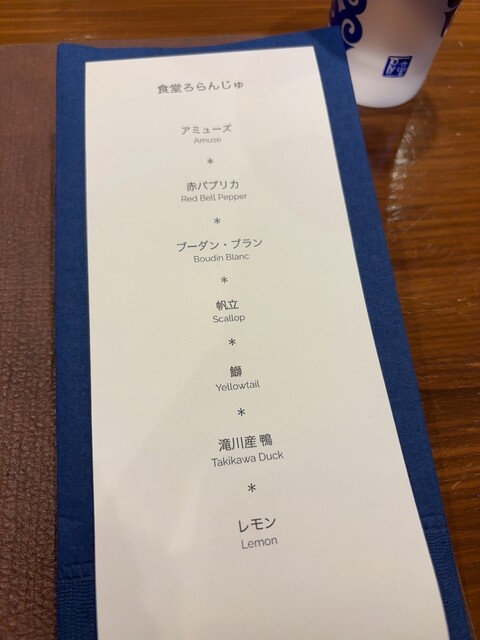 食堂ろらんじゅ
アミューズ
Amuse
*
赤パプリカ
Red Bell Pepper
*
ブーダン・ブラン
Boudin Blanc
*
帆立
Scallop
*
鰤
Yellowtail
*
滝川産 鴨
Takikawa Duck
*
レモン
Lemon